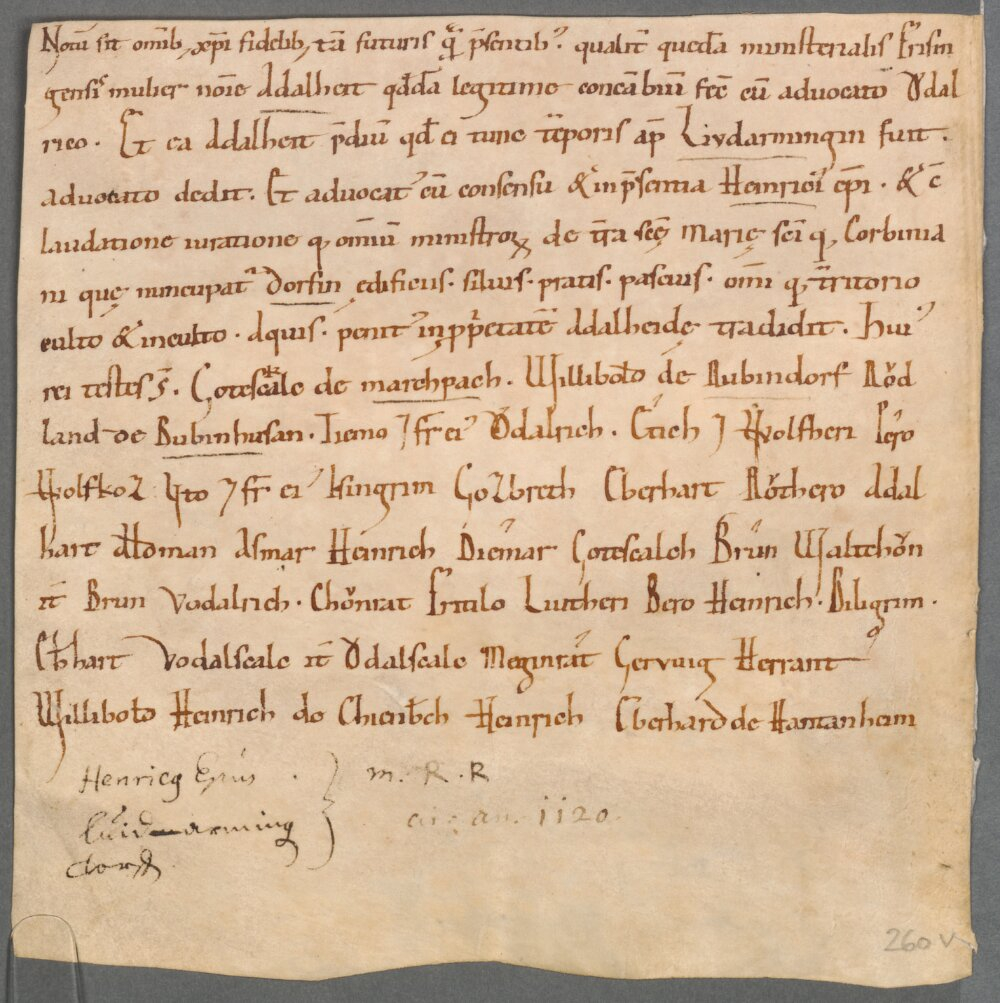 Notū sit omīb; xp̄i fidelib; tā futuris q̄ p̄sentib; qualit̄ quedā ministerialis Frisin
gensis mulier noīe Adalheit q̄dā legitime concābiū fec̄ cū advocato Ŏdal
rico. Et ea Adalheit p̄diū qd̄ ei tunc tēporis ap̄ Livdarmingin fuit.
advocato dedit. Et advocat᾿ cū consensu & in p̄sentia Heinrici ep̄i. & c̄
laudatione iuratione q; omiū ministroꝝ de t̄ra scē Marię sc̄i q; Corbinia
ni quę nuncupat᾿ Dorfin ędificiis. silvis. pratis. pascuis. om̄i q; t̄ritorio
culto & inculto. Aquis. penit᾿ in pp̄etatē Adalheidę tradidit. Hui᾿
rei testes s̄. Gotescalc de marchpach. Willibolt de Bubindorf Rŏd
land de Bubinhusan. Tiemo ⁊ fr̄ ei᾿ Ŏdalrich. Etich ⁊ Wolfheri Pero
Wolfkoz Vto ⁊ fr̄ ei᾿ Isingrim Gozbreth Eberhart Rŏthero Adal
hart Altoman Asmar Heinrich Diemar Gotescalch Brun Waltchŏn
it̄ Brun Vodalrich. Chŏnrat Fritilo Liutheri Bero Heinrich. Biligrim.
Ebhart Vodalscalc it̄ Ŏdalscalc Meginrat Gervuig Herrant
Willibolt Heinrich de Chienbch Heinrich Eberhard de Hantanheim
Henricq Epus . } m. R. R
luid-arming ci: an. 1120.
dorf
260 v